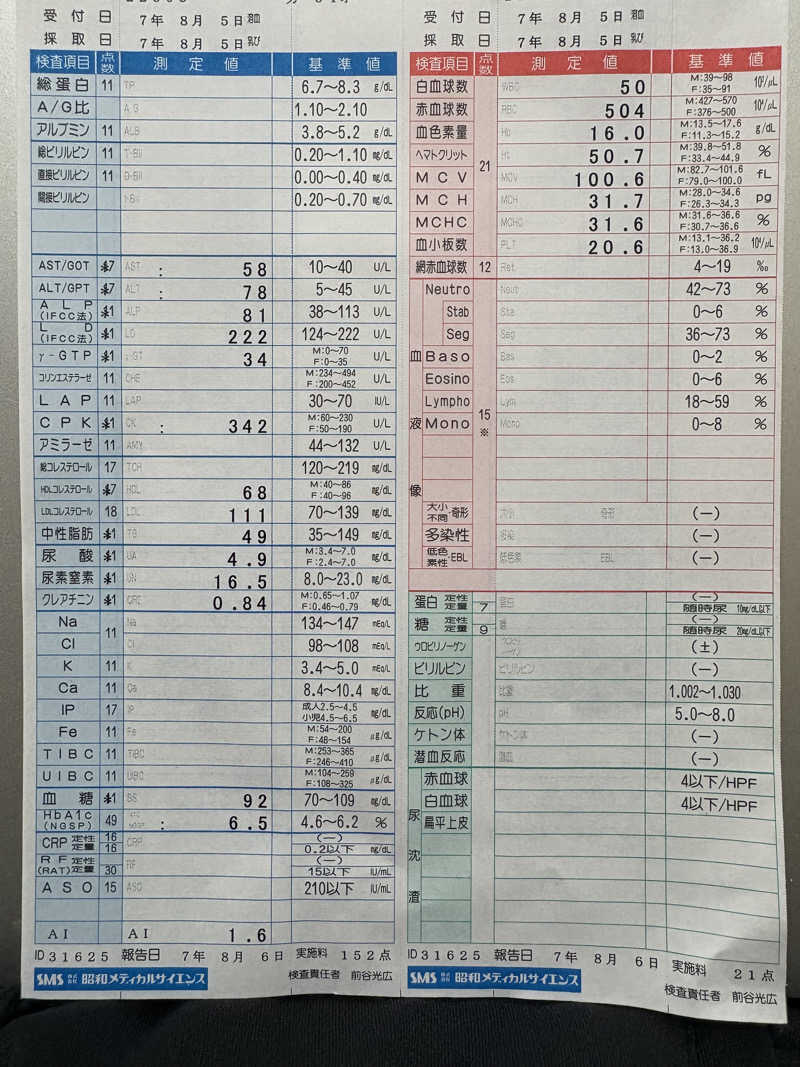 受付日 7年 8月 5日
採取日 7年 8月 5日
検査項目 点数 測定値 基準値
総蛋白 11 TP 6.7～8.3 g/dL
A/G比 A/G 1.10～2.10
アルブミン 11 ALB 3.8～5.2 g/dL
総ビリルビン 11 T-Bil 0.20～1.10 mg/dL
直接ビリルビン 11 D-Bil 0.00～0.40 mg/dL
間接ビリルビン I-Bil 0.20～0.70 mg/dL
AST/GOT *7 AST : 58 10～40 U/L
ALT/GPT *7 ALT : 78 5～45 U/L
ALP (IFCC法) *1 ALP 81 38～113 U/L
LD (IFCC法) *1 LD 222 124～222 U/L
γ-GTP *1 γ-GT 34 M:0～70 F:0～35 U/L
コリンエステラーゼ 11 CHE M:234～494 F:200～452 U/L
LAP 11 LAP 30～70 IU/L
CPK *1 CK : 342 M:60～230 F:50～190 U/L
アミラーゼ 11 AMY 44～132 U/L
総コレステロール 17 TCH 120～219 mg/dL
HDLコレステロール *7 HDL 68 M:40～86 F:40～96 mg/dL
LDLコレステロール 18 LDL 111 70～139 mg/dL
中性脂肪 *1 TG 49 35～149 mg/dL
尿酸 *1 UA 4.9 M:3.4～7.0 F:2.4～7.0 mg/dL
尿素窒素 *1 UN 16.5 8.0～23.0 mg/dL
クレアチニン *1 CRE 0.84 M:0.65～1.07 F:0.46～0.79 mg/dL
Na 11 Na 134～147 mEq/L
Cl Cl 98～108 mEq/L
K 11 K 3.4～5.0 mEq/L
Ca 11 Ca 8.4～10.4 mg/dL
IP 17 IP 成人2.5～4.5 小児4.5～6.5 mg/dL
Fe 11 Fe M:54～200 F:48～154 μg/dL
TIBC 11 TIBC M:253～365 F:246～410 μg/dL
UIBC 11 UIBC M:104～259 F:108～325 μg/dL
血糖 *1 BS 92 70～109 mg/dL
HbA1c (NGSP) 49 : 6.5 4.6～6.2 %
CRP 定性 定量 16 16 CRP (－) 0.2以下 mg/dL
RF 定性 (RAT)定量 30 RF (－) 15以下 IU/mL
ASO 15 ASO 210以下 IU/mL
AI AI 1.6
ID31625 報告日 7年 8月 6日 実施料 152点
SMS 株式会社 昭和メディカルサイエンス 検査責任者 前谷光広
受付日 7年 8月 5日
採取日 7年 8月 5日
検査項目 点数 測定値 基準値
白血球数 21 WBC 50 M:39～98 F:35～91 10²/μL
赤血球数 RBC 504 M:427～570 F:376～500 10⁴/μL
血色素量 Hb 16.0 M:13.5～17.6 F:11.3～15.2 g/dL
ヘマトクリット Ht 50.7 M:39.8～51.8 F:33.4～44.9 %
MCV MCV 100.6 M:82.7～101.6 F:79.0～100.0 fL
MCH MCH 31.7 M:28.0～34.6 F:26.3～34.3 pg
MCHC MCHC 31.6 M:31.6～36.6 F:30.7～36.6 %
血小板数 PLT 20.6 M:13.1～36.2 F:13.0～36.9 10⁴/μL
網赤血球数 12 Ret 4～19 ‰
血液像 15 ※
Neutro Neut 42～73 %
Stab Sta 0～6 %
Seg Seg 36～73 %
Baso Bas 0～2 %
Eosino Eos 0～6 %
Lympho Lym 18～59 %
Mono Mono 0～8 %
大小不同・奇形 大小 奇形 (－)
多染性 多染 (－)
低色素性・EBL 低色素 EBL (－)
蛋白 定性 定量 7 蛋白 (－) 随時尿 10mg/dL以下
糖 定性 定量 9 糖 (－) 随時尿 20mg/dL以下
ウロビリノーゲン ウロビリノーゲン (±)
ビリルビン ビリルビン (－)
比重 比重 1.002～1.030
反応(pH) pH 5.0～8.0
ケトン体 ケトン体 (－)
潜血反応 潜血 (－)
尿沈渣
赤血球 4以下/HPF
白血球 4以下/HPF
扁平上皮
ID31625 報告日 7年 8月 6日 実施料 21点
SMS 株式会社 昭和メディカルサイエンス 検査責任者 前谷光広